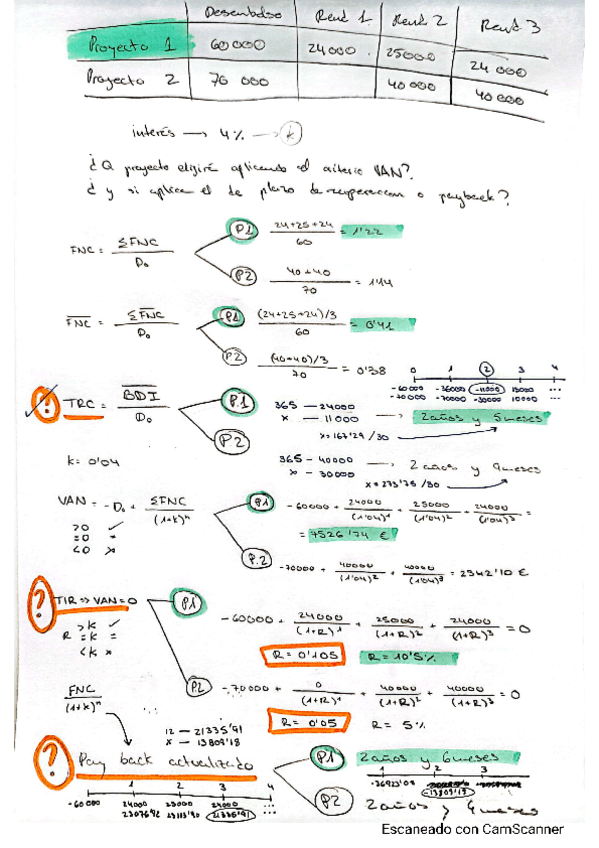 Desembolso Rend 1 Rend 2 Rend 3
Proyecto 1 60000 24000 25000 24000
Proyecto 2 70 000 40000 40000
interés → 4% → k
¿Q proyecto eligiré aplicando el criterio VAN?
¿y si aplica el de plazo de recuperacion o payback?
FNC = ΣFNC / D₀
P1 24+25+24 / 60 = 1'22
P2 40+40 / 70 = 1'14
FNC = ΣFNC / D₀
P1 (24+25+24)/3 / 60 = 0'41
P2 (40+40)/3 / 70 = 0'38
0 1 2 3 4
-60000 -36000 -11000 13000 ...
-70000 -70000 -30000 10000 ...
? TRC = BDI / D₀
P1 365 — 24000
x — 11000 → 2 años y 5 meses
x = 167'29 /30
P2 365 - 40000
x - 30000 → 2 años y 9 meses
x = 273'75 /30
k = 0'04
VAN = -D₀ + ΣFNC / (1+k)ⁿ
>0 ✓
=0 =
<0 x
P1 -60000 + 24000/(1'04)¹ + 25000/(1'04)² + 24000/(1'04)³ =
= 7526'74 €
P.2 -70000 + 40000/(1'04)² + 40000/(1'04)³ = 2542'10 €
? TIR ⇒ VAN = 0
R >k ✓
=k =
<k x
P1 -60000 + 24000/(1+R)¹ + 25000/(1+R)² + 24000/(1+R)³ = 0
R = 0'105 R = 10'5%
P2 -70000 + 0/(1+R)¹ + 40000/(1+R)² + 40000/(1+R)³ = 0
R = 0'05 R = 5%
FNC / (1+k)ⁿ
...
12 — 21335'91
x — 13809'18
? Pay back actualizado
P1 2 años y 6 meses
1 2 3
-36923'08
-13809'18
P2 2 años y 9 meses
1 2 3 4
-60000 24000 25000 24000 ...
23076'92 23113'90 21335'91 ...
Escaneado con CamScanner